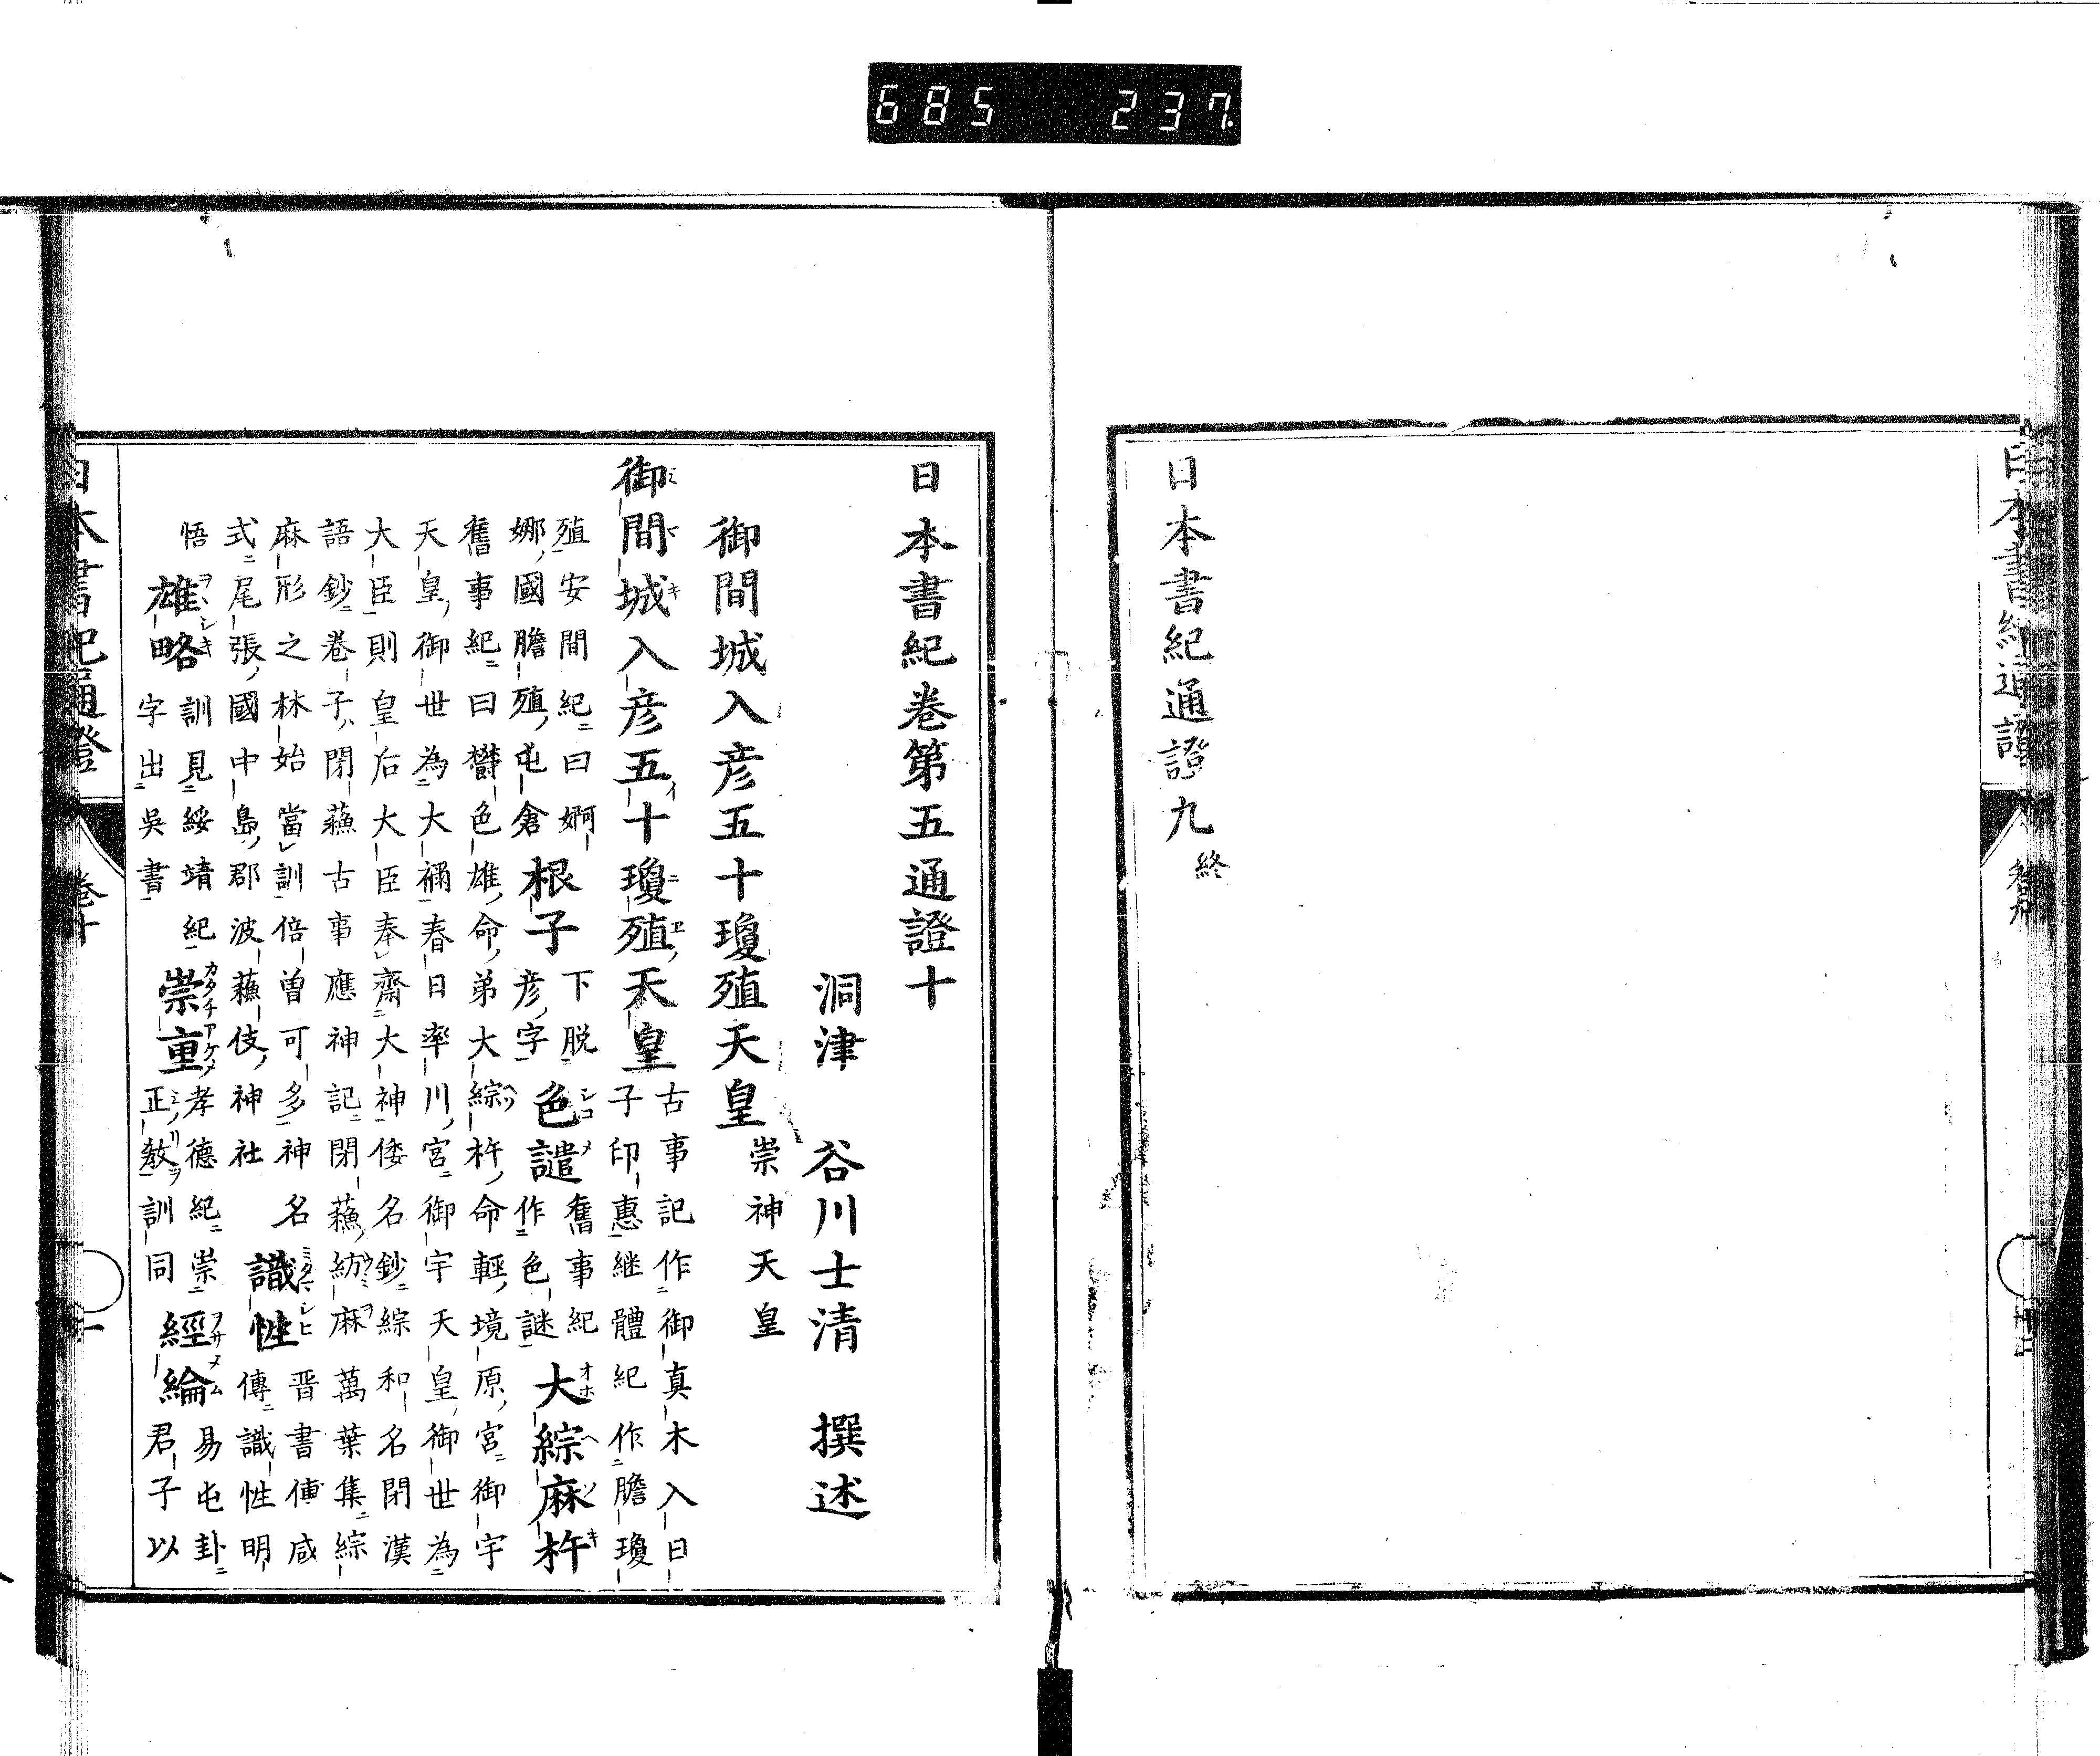 685 237
日本書紀通證九終
日本書紀通證
日本書紀卷第五通證十
洞津 谷川士清 撰述
御間城入彦五十瓊殖天皇 崇神天皇
御間城入彦五十瓊殖天皇 古事記作御真木入日子印惠継體紀作膽瓊
殖安間紀曰婀娜國膽殖屯倉 根子 下脱彦字 色譴 舊事紀作色謎 大綜麻杵
舊事紀曰欝色雄命弟大綜杵命輕境原宮御宇天皇御世為大禰春日率川宮御宇天皇御世為
大臣則皇后大臣奉齋大神倭名鈔綜和名閉漢語鈔卷子閉蘓古事應神記閉蘓紡麻萬葉集綜
麻形之林始當訓倍曽可多神名式尾張國中島郡波蘓伎神社 識性 晋書傅咸傳識性明
悟 雄略 訓見綏靖紀字出吳書 崇重 孝德紀崇正教訓同 經綸 易屯卦君子以
日本書紀通證 卷十 一